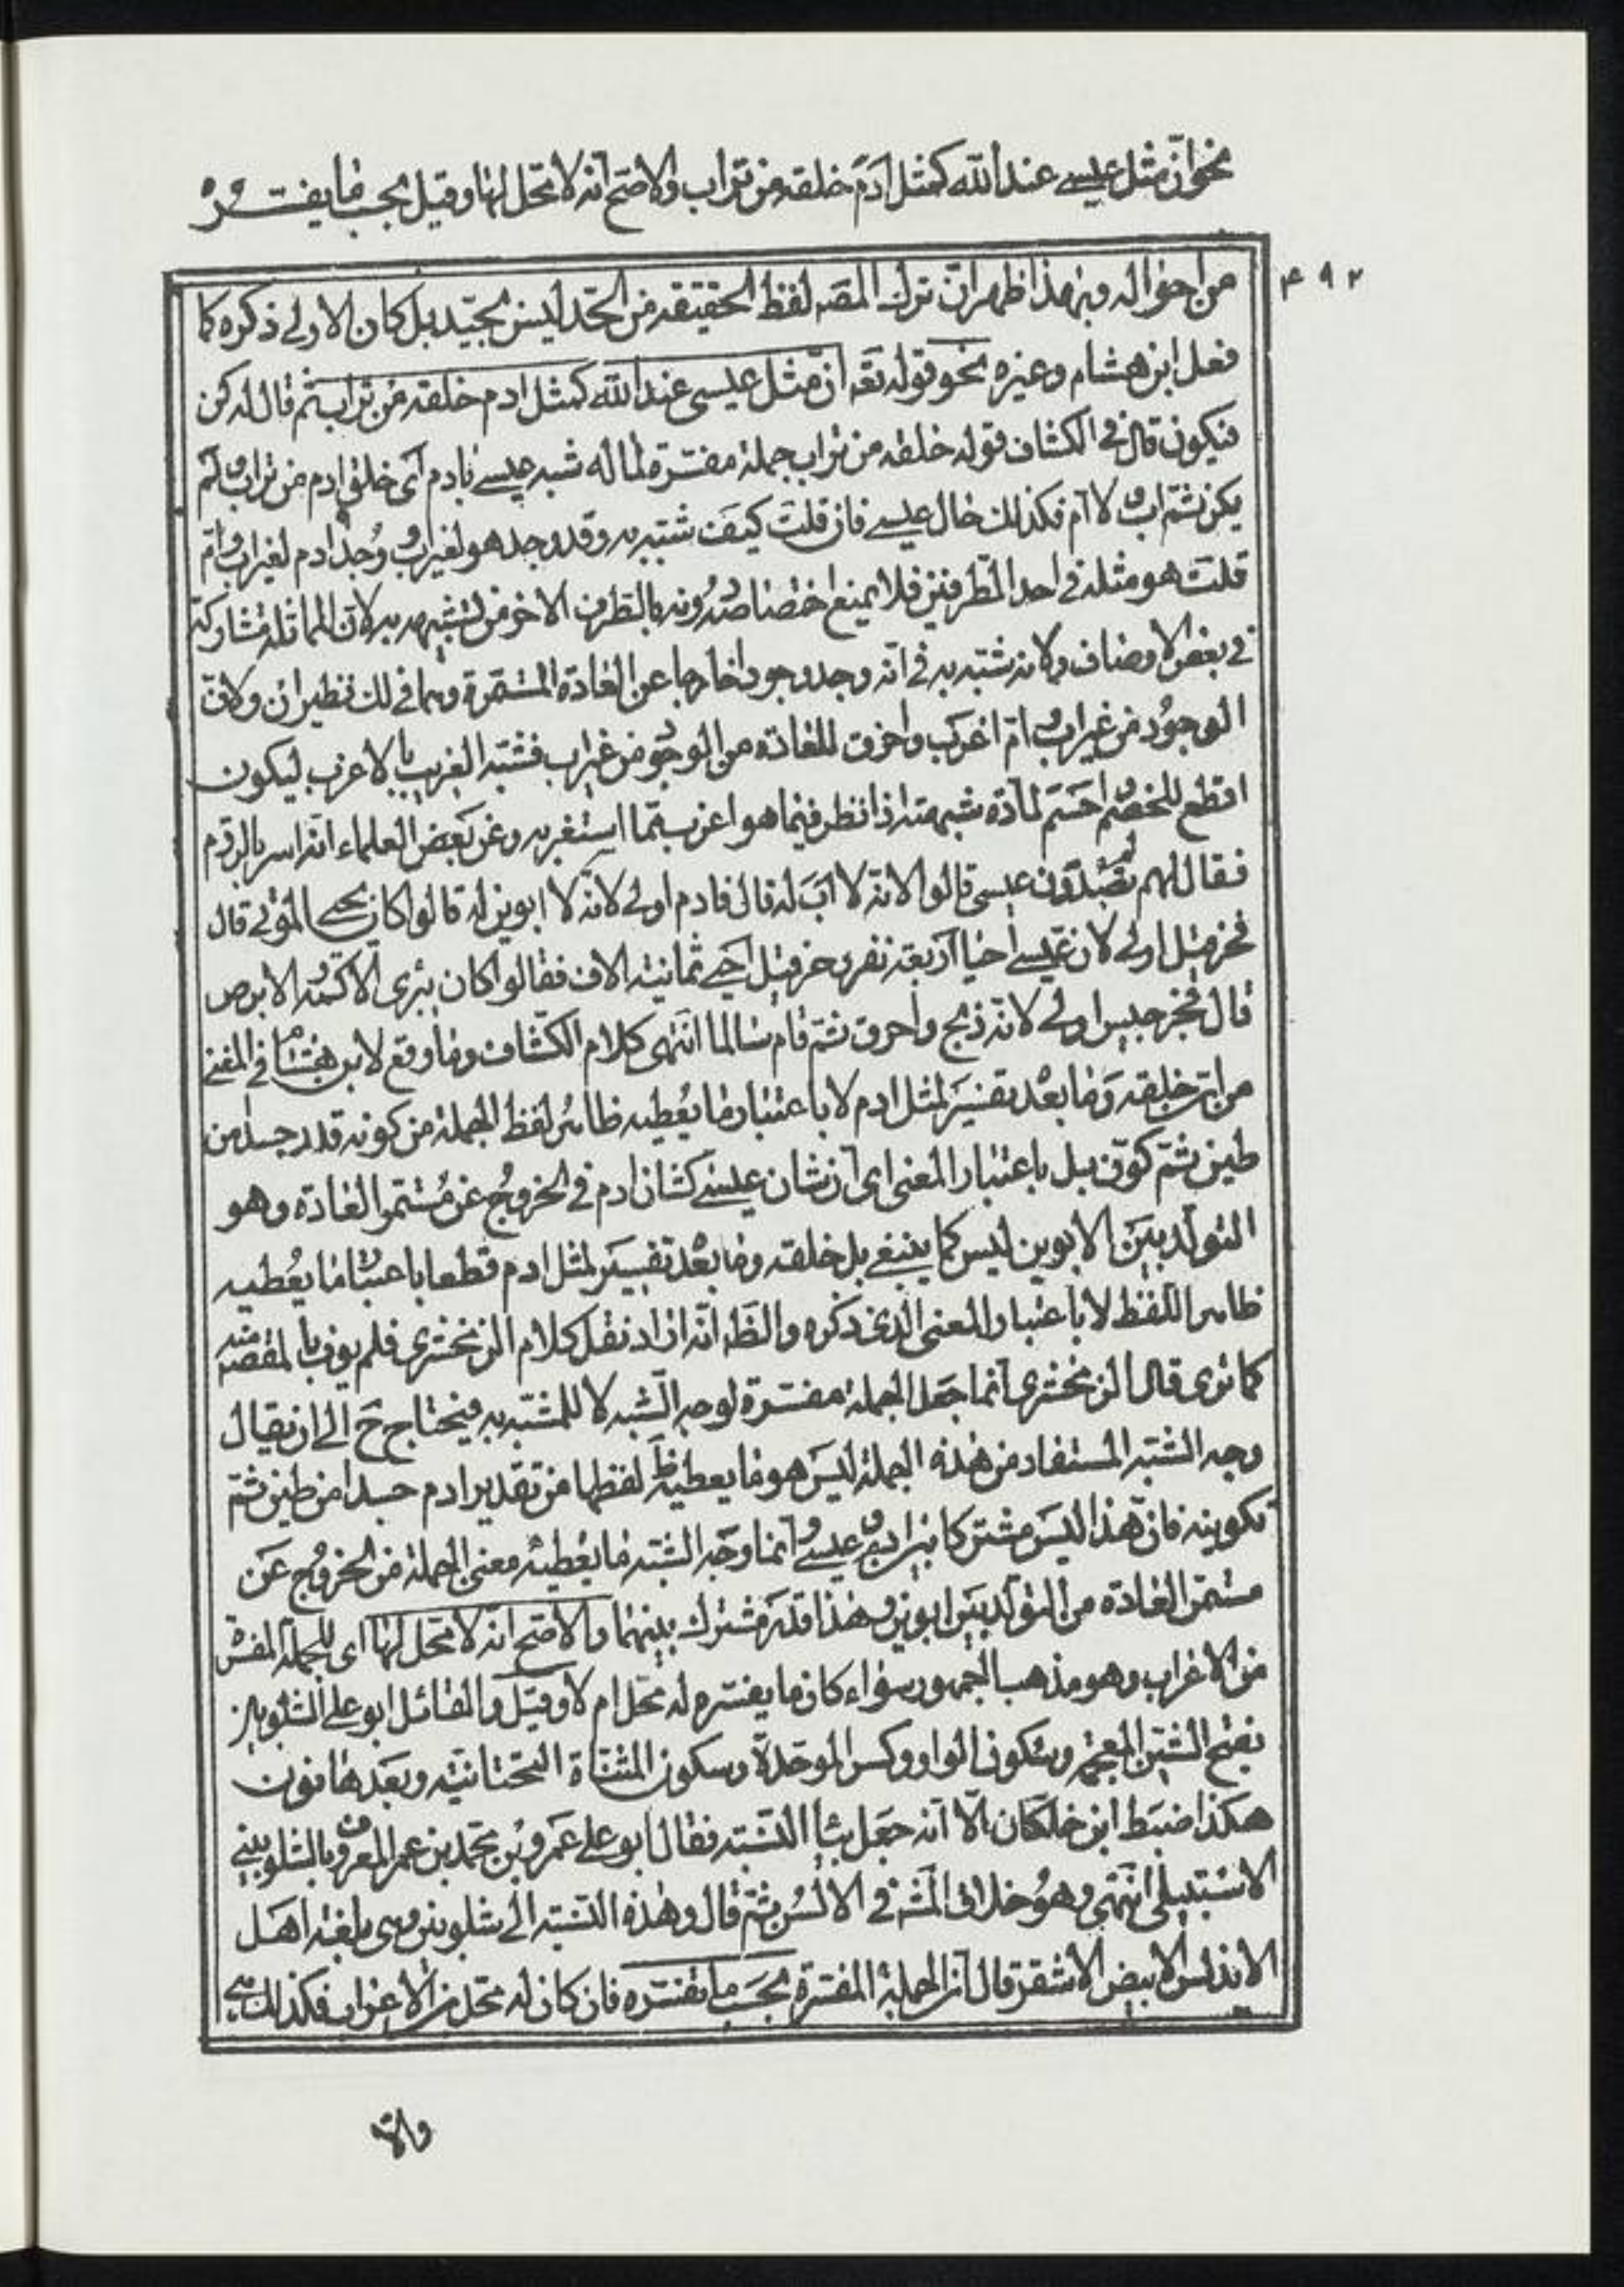 نحو ان مثل عيسى عند الله كمثل ادم خلقه من تراب والاصح انه لا محل لها وقيل بحسب ما يفسره
٤٩٢
من احواله وبهذا ظهر ان ترك المصه لفظ الحقيقة من الحد ليس بجيد بل كان الاولى ذكره كما
فعل ابن هشام وغيره نحو قوله تعه ان مثل عيسى عند الله كمثل ادم خلقه من تراب ثم قال له كن
فيكون قال في الكشاف قوله خلقه من تراب جملة مفسرة لما له شبه عيسى بادم اى خلق ادم من تراب ولم
يكن ثم اب ولا ام فكذلك حال عيسى فان قلت كيف شبه به وقد وجد هو لغير اب ووجد ادم لغير اب وام
قلت هو مثله في احد الطرفين فلا يمنع اختصاصه دونه بالطرف الاخر من تشبيهه به لان المماثلة مشاركة
في بعض الاوصاف ولانه شبه به في انه وجد وجودا خارجا عن العادة المستمرة وهما في ذلك نظيران ولان
الوجود من غير اب وام اغرب واخرق للعادة من الوجود من غير اب فشبه الغريب بالاغرب ليكون
اقطع للخصم واحسم لمادة شبهته اذا نظر فيما هو اغرب مما استغربه وعن بعض العلماء انه اسر بالروم
فقال لهم لم تعبدون عيسى قالوا لانه لا اب له قال فادم اولى لانه لا ابوين له قالوا كان يحيى الموتى قال
فحزقيل اولى لان عيسى احيا اربعة نفر وحزقيل احيى ثمانية الاف فقالوا كان يبرى الاكمه والابرص
قال فجرجيس اولى لانه ذبح واحرق ثم قام سالما انتهى كلام الكشاف وما وقع لابن هشام في المغنى
من ان خلقه وما بعده تفسير لمثل ادم لا باعتبار ما يعطيه ظاهر لفظ الجملة من كونه قدر جسدا من
طين ثم كون بل باعتبار المعنى اى ان شان عيسى كشان ادم في الخروج عن مستمر العادة وهو
التولد بين الابوين ليس كما ينبغى بل خلقه وما بعده تفسير لمثل ادم قطعا باعتبار ما يعطيه
ظاهر اللفظ لا باعتبار المعنى الذى ذكره والظه انه اراد نقل كلام الزمخشرى فلم يوف بالمقصد
كما ترى قال الزمخشرى انما جعل الجملة مفسرة لوجه الشبه لا للمشبه به فيحتاج ح الى ان يقال
وجه الشبه المستفاد من هذه الجملة ليس هو ما يعطيه ظ لفظها من تقدير ادم جسدا من طين ثم
تكوينه فان هذا ليس مشتركا بين ادم وعيسى وانما وجه الشبه ما يعطيه معنى الجملة من الخروج عن
مستمر العادة من التولد بين ابوين وهذا قدر مشترك بينهما والاصح انه لا محل لها اى للجملة المفسرة
من الاعراب وهو مذهب الجمهور سواء كان ما يفسره له محل ام لا وقيل والقائل ابو على الشلوبين
بفتح الشين المعجمة وسكون الواو وكسر الموحدة وسكون المثناة التحتانية وبعدها نون
هكذا ضبط ابن خلكان الا انه جعل بياء النسبة فقال ابو على عمرو بن محمد بن عمر المعروف بالشلوبينى
الاشبيلى انتهى وهو خلاف المشه في الالسن ثم قال وهذه النسبة الى شلوبين وهى بلغة اهل
الاندلس الابيض الاشقر قال ان الجملة المفسرة بحسب ما تفسره فان كان له محل من الاعراب فكذلك هى
والا